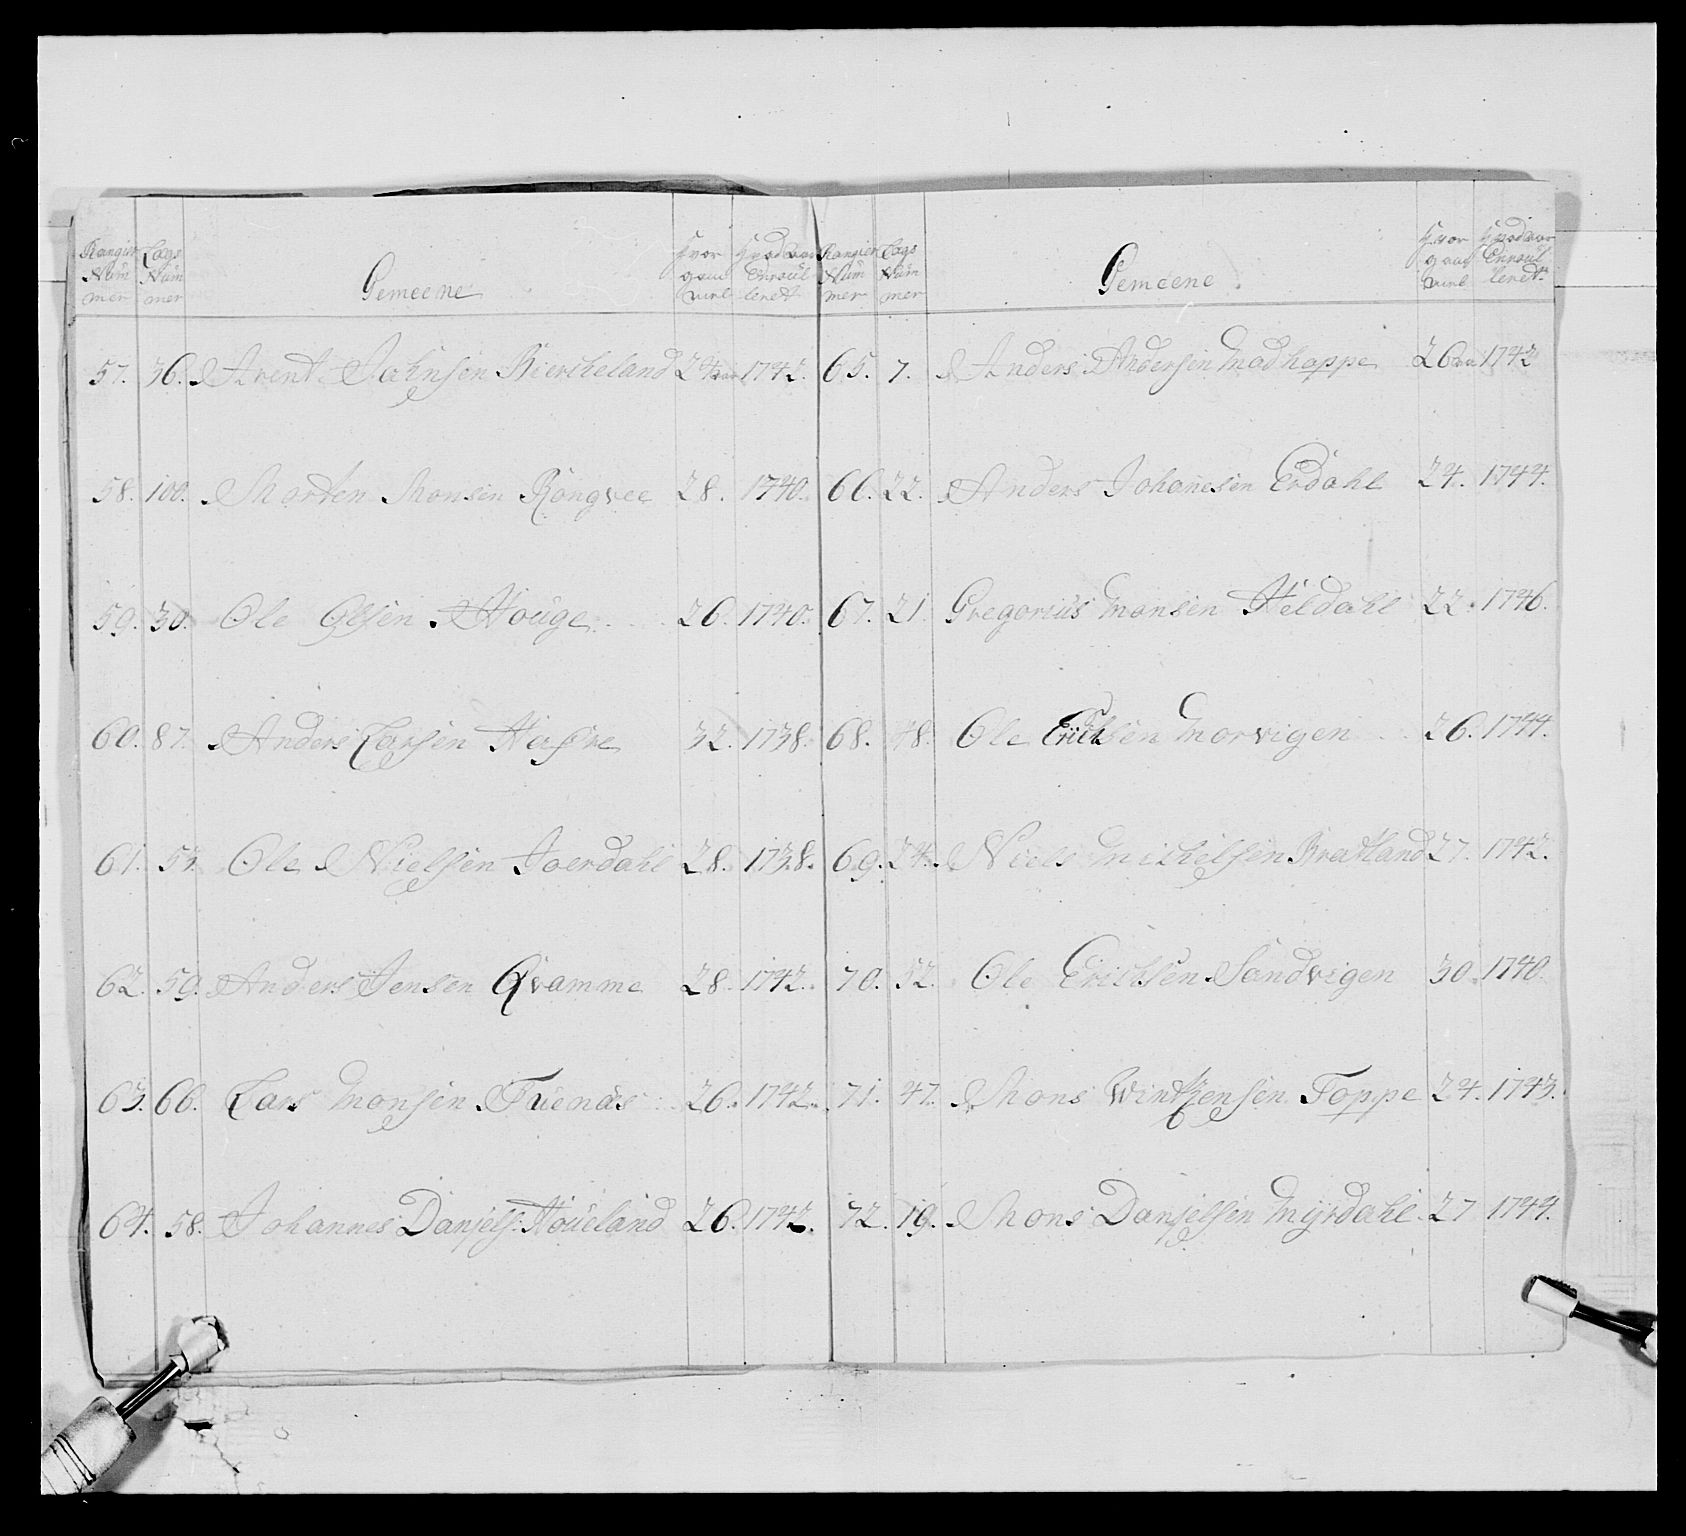 Rangier Nüm mer
Lags Nüm mer
Gemeene
Hvor gam̅el
Hvad aar Enroül leret
57. 36. Arent Johnsen Biercheland 24 aar 1742.
58. 100. Morten Monsen Rongvee 28. 1740.
59. 30. Ole Olsen Houge 26. 1740.
60. 87. Anders Larsen 32. 1738.
61. 53. Ole Nielsen 28. 1738.
62. 59. Anders Jensen Qvamme 28. 1742.
63. 66. Lars Monsen 26. 1742.
64. 58. Johannes Danjels. Hoüeland 26. 1742.
Rangier Nüm mer
Lags Nüm mer
Gemeene
Hvor gam̅el
Hvad aar Enroül leret
65. 7. Anders Andersen Madhoppe 26 aar 1742
66. 22. Anders Johanesen Erdahl 24. 1744.
67. 21. Gregorius Monsen Heldahl 22. 1746.
68. 48. Ole Erichsen Morvigen 26. 1744.
69. 24. Niels Michelsen Bratland 27. 1742.
70. 52. Ole Erichsen Sandvigen 30. 1740.
71. 47. Mons Wintzensen Toppe 24. 1743.
72. 19. Mons Danjelsen Myrdahl 27 1744.